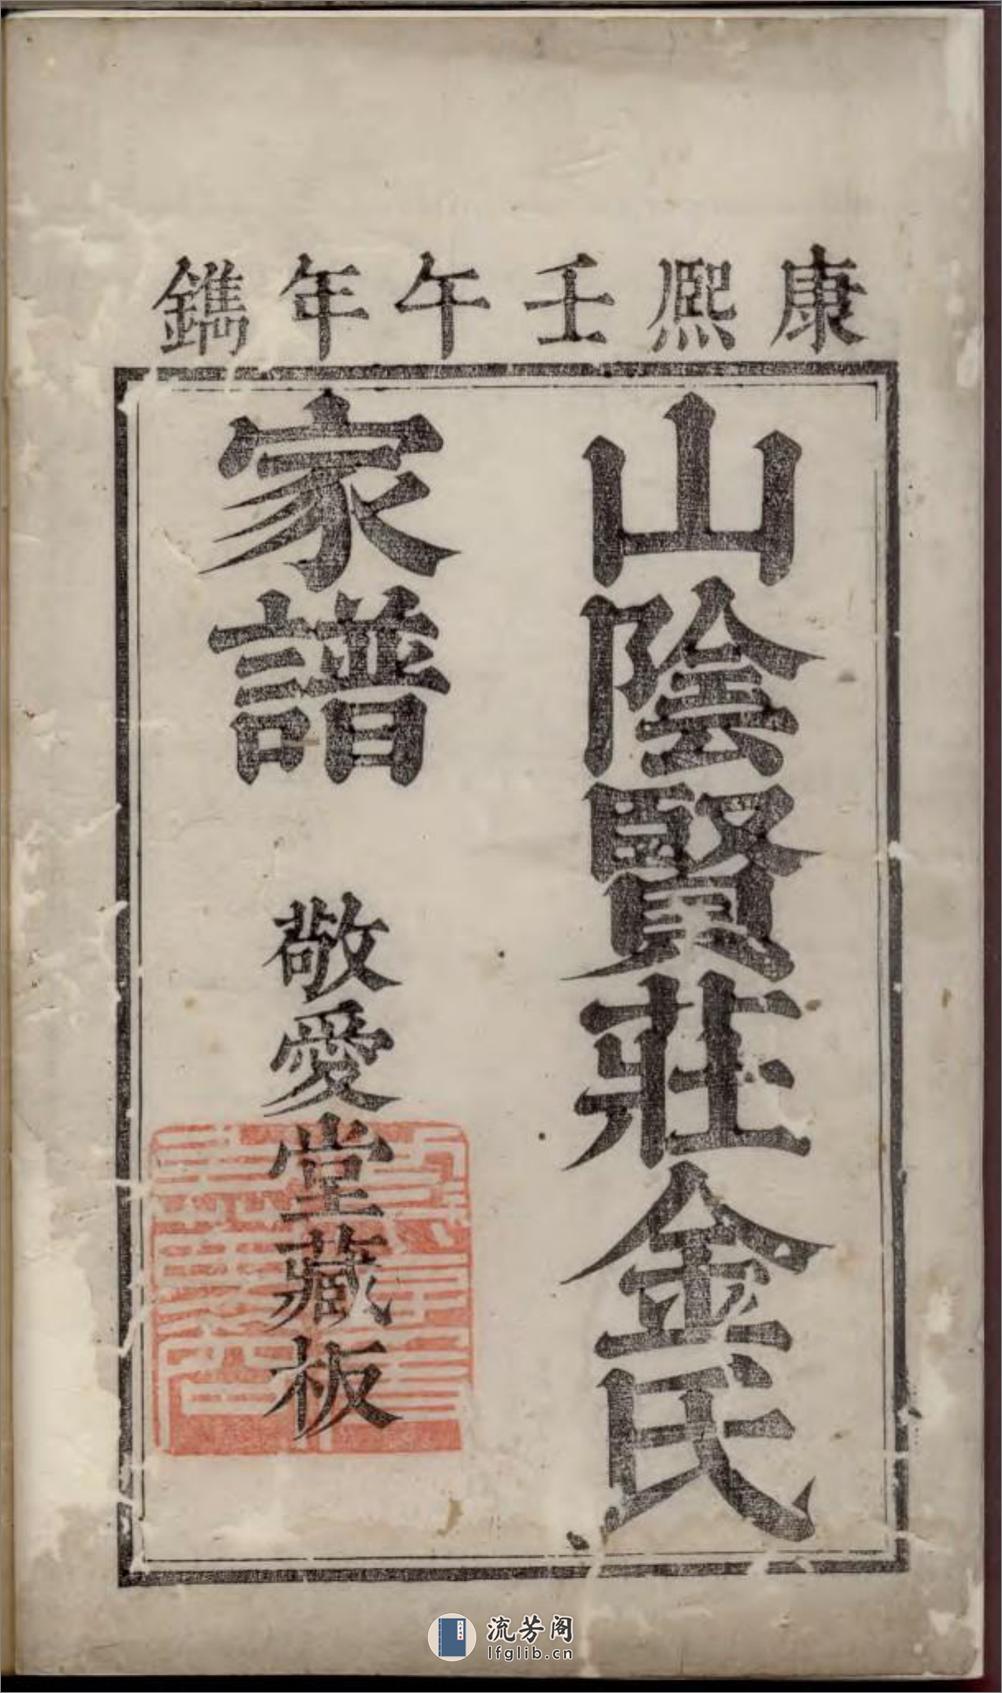 康熈壬午年鐫
山陰賢莊金氏
家譜
敬愛堂藏板
流芳阁
lfglib.cn